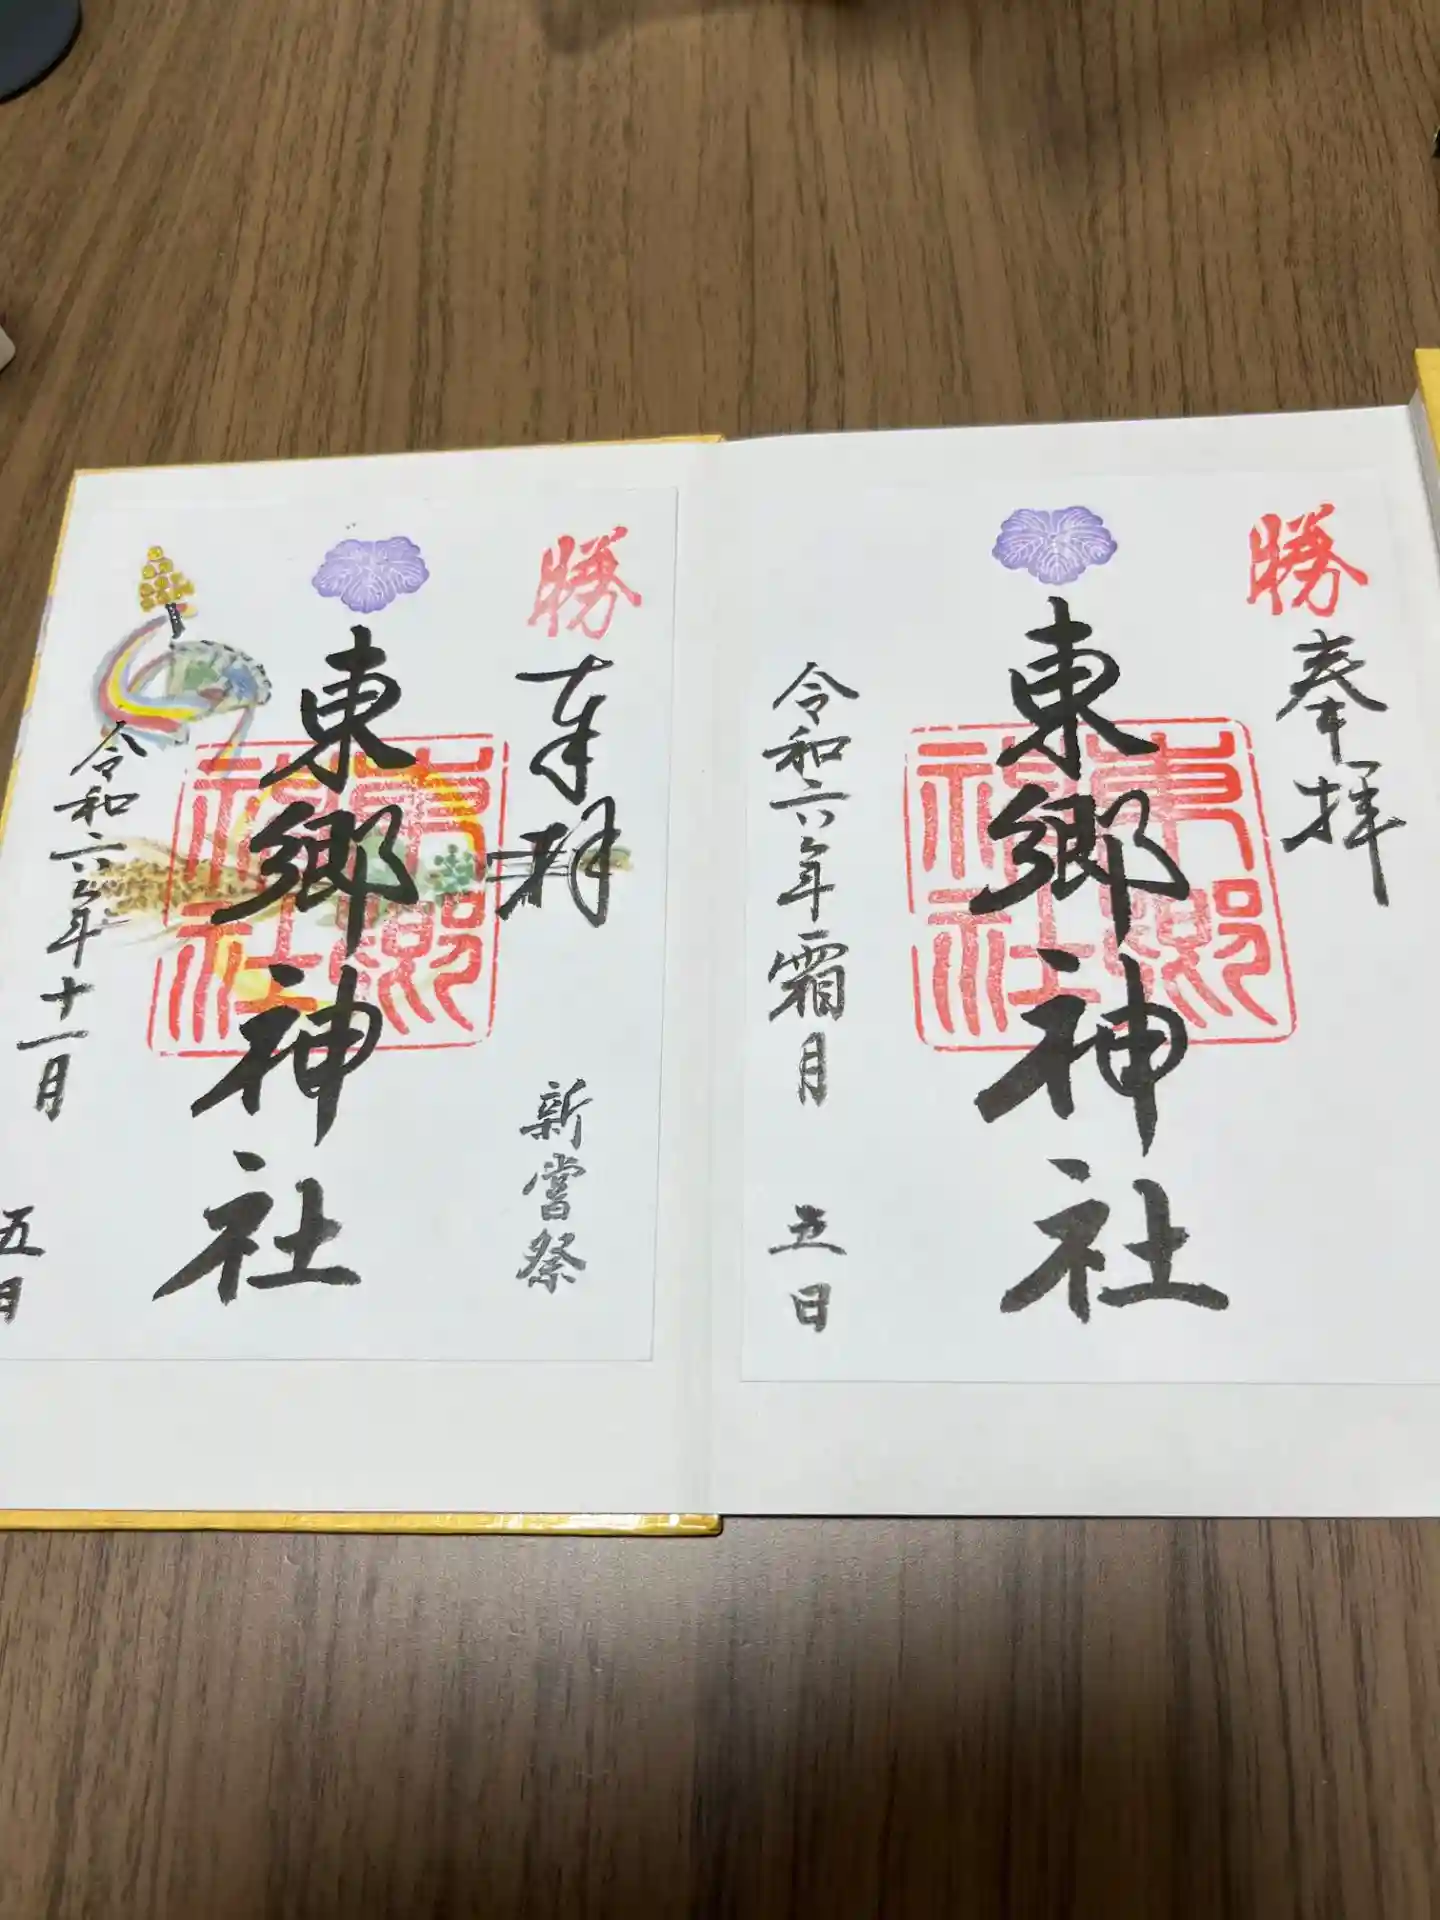 勝
奉拝
東郷神社
東郷神社
令和六年霜月 五日
勝
奉拝
新嘗祭
東郷神社
東郷神社
令和六年十一月 五日